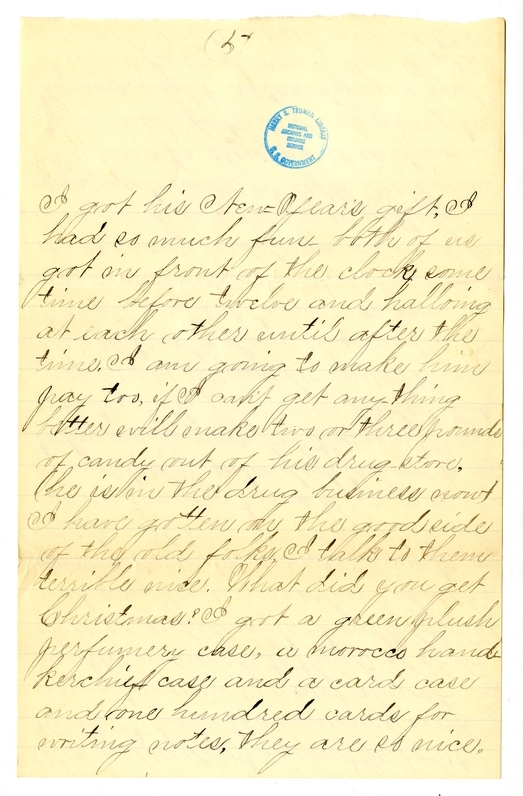 (5)
HARRY S. TRUMAN LIBRARY
NATIONAL
ARCHIVES AND
RECORDS
SERVICE
U.S. GOVERNMENT
I got his New-Years gift, I
had so much fun both of us
got in front of the clock some
time before twelve and halloing
at each other until after the
time. I am going to make him
pay too, if I can't get any-thing
better will make two or three pounds
of candy out of his drug store.
(he is in the drug business now)
I have gotten on the good side
of the old folks I talk to them
terrible nice. What did you get
Christmas? I got a green plush
perfumery case, a morocco hand-
kerchief case and a card case
and one hundred cards for
writing notes, they are so nice.